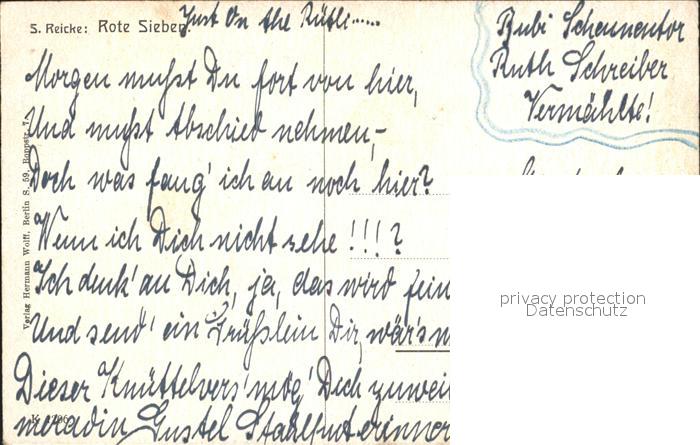 S. Reicke: Rote Sieben.
Just On the Rütli.....
Rubi
Ruth Schreiber
Vermählte!
Morgen mußt Du fort von hier,
Und mußt Abschied nehmen,-
Doch was fang' ich an noch hier?
Wenn ich Dich nicht sehe!!!?
Ich denk' an Dich, ja, das wird fein
Und send' ein Grüßlein Dir, wär's
Dieser Knüttelvers mög' Dich
Gustel
Verlag Hermann Wolff, Berlin S. 59, Boppstr. 7.
privacy protection
Datenschutz